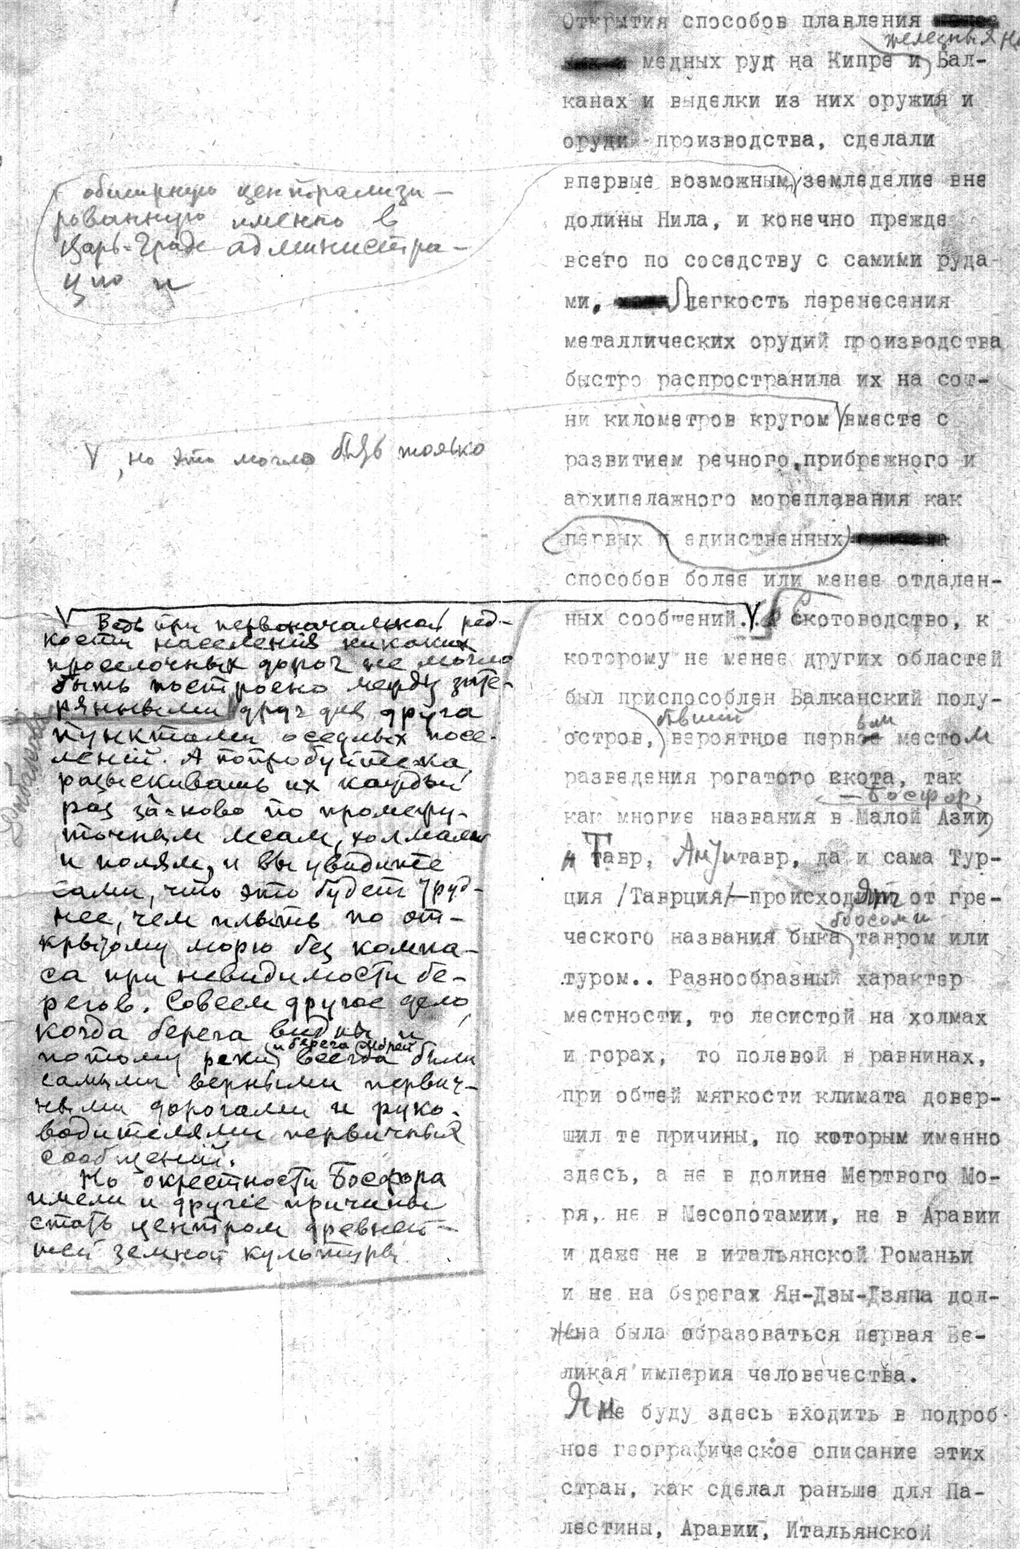 Открытия способов плавления
железных на
медных руд на Кипре и Бал-
канах и выделки из них оружия и
орудий производства, сделали
впервые возможным земледелие вне
долины Нила, и конечно прежде
всего по соседству с самими руда-
ми, легкость перенесения
металлических орудий производства
быстро распространила их на сот-
ни километров кругом вместе с
развитием речного, прибрежного и
архипелажного мореплавания как
первых и единственных
способов более или менее отдален-
ных сообщений. Скотоводство, к
которому не менее других областей
был приспособлен Балканский полу-
бывший вым
остров, вероятное перв местом
разведения рогатого скота, так
— Босфор,
как многие названия в Малой Азии
Тавр, Антитавр, да и сама Тур-
ция /Таврция/—происходят от гре-
ббосом и
ческого названия быка тавром или
туром.. Разнообразный характер
местности, то лесистой на холмах
и горах, то полевой в равнинах,
при общей мягкости климата довер-
шил те причины, по которым именно
здесь, а не в долине Мертвого Мо-
ря, не в Месопотамии, не в Аравии
и даже не в итальянской Романьи
и не на берегах Ян-Дзы-Дзяна дол-
жна была образоваться первая Ве-
ликая империя человечества.
Я не буду здесь входить в подроб-
ное географическое описание этих
стран, как сделал раньше для Па-
лестины, Аравии, Итальянской
обширную централизи-
рованную именно в
Царь-Граде администра-
цию и
, но это могло быть только
Ведь при первоначальной ред-
кости населения никаких
проселочных дорог не могло
быть построено между зате-
рянными друг для друга
пунктами оседлых посе-
лений. А попробуйте-ка
разыскивать их каждый
раз за-ново по промежу-
точным лесам, холмам
и полям, и вы увидите
сами, что это будет труд-
нее, чем плыть по от-
крытому морю без компа-
са при невидимости бе-
регов. Совсем другое дело
когда берега видны и
и берега морей
потому реки всегда были
самыми верными первич-
ными дорогами и руко-
водителями первичных
сообщений.
Но окрестности Босфора
имели и другие причины
стать центром древней-
шей земной культуры